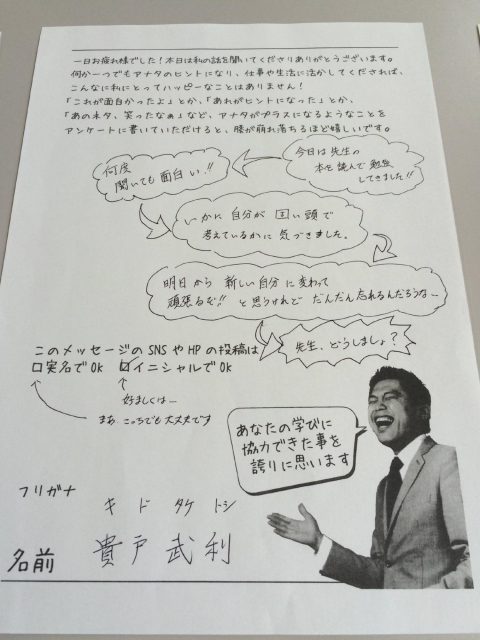 一日お疲れ様でした！本日は私の話を聞いてくださりありがとうございます。
何か一つでもアナタのヒントになり、仕事や生活に活かしてくだされば、
こんなに私にとってハッピーなことはありません！
「これが面白かったよ」とか、「あれがヒントになった」とか、
「あのネタ、笑ったなぁ」など、アナタがプラスになるようなことを
アンケートに書いていただけると、膝が崩れ落ちるほど嬉しいです。
今日は先生の
本を読んで勉強
してきました!!
何度
聞いても面白い!!
いかに自分が固い頭で
考えているかに気づきました。
明日から新しい自分に変わって
頑張るぞ!!と思うけれどだんだん忘れるんだろうな…
先生、どうしましょ？
このメッセージのSNSやHPの投稿は
□実名でOK ☑イニシャルでOK
好ましくは…
まあこっちでも大丈夫です
あなたの学びに
協力できた事を
誇りに思います
フリガナ キド タケトシ
名前 貴戸武利